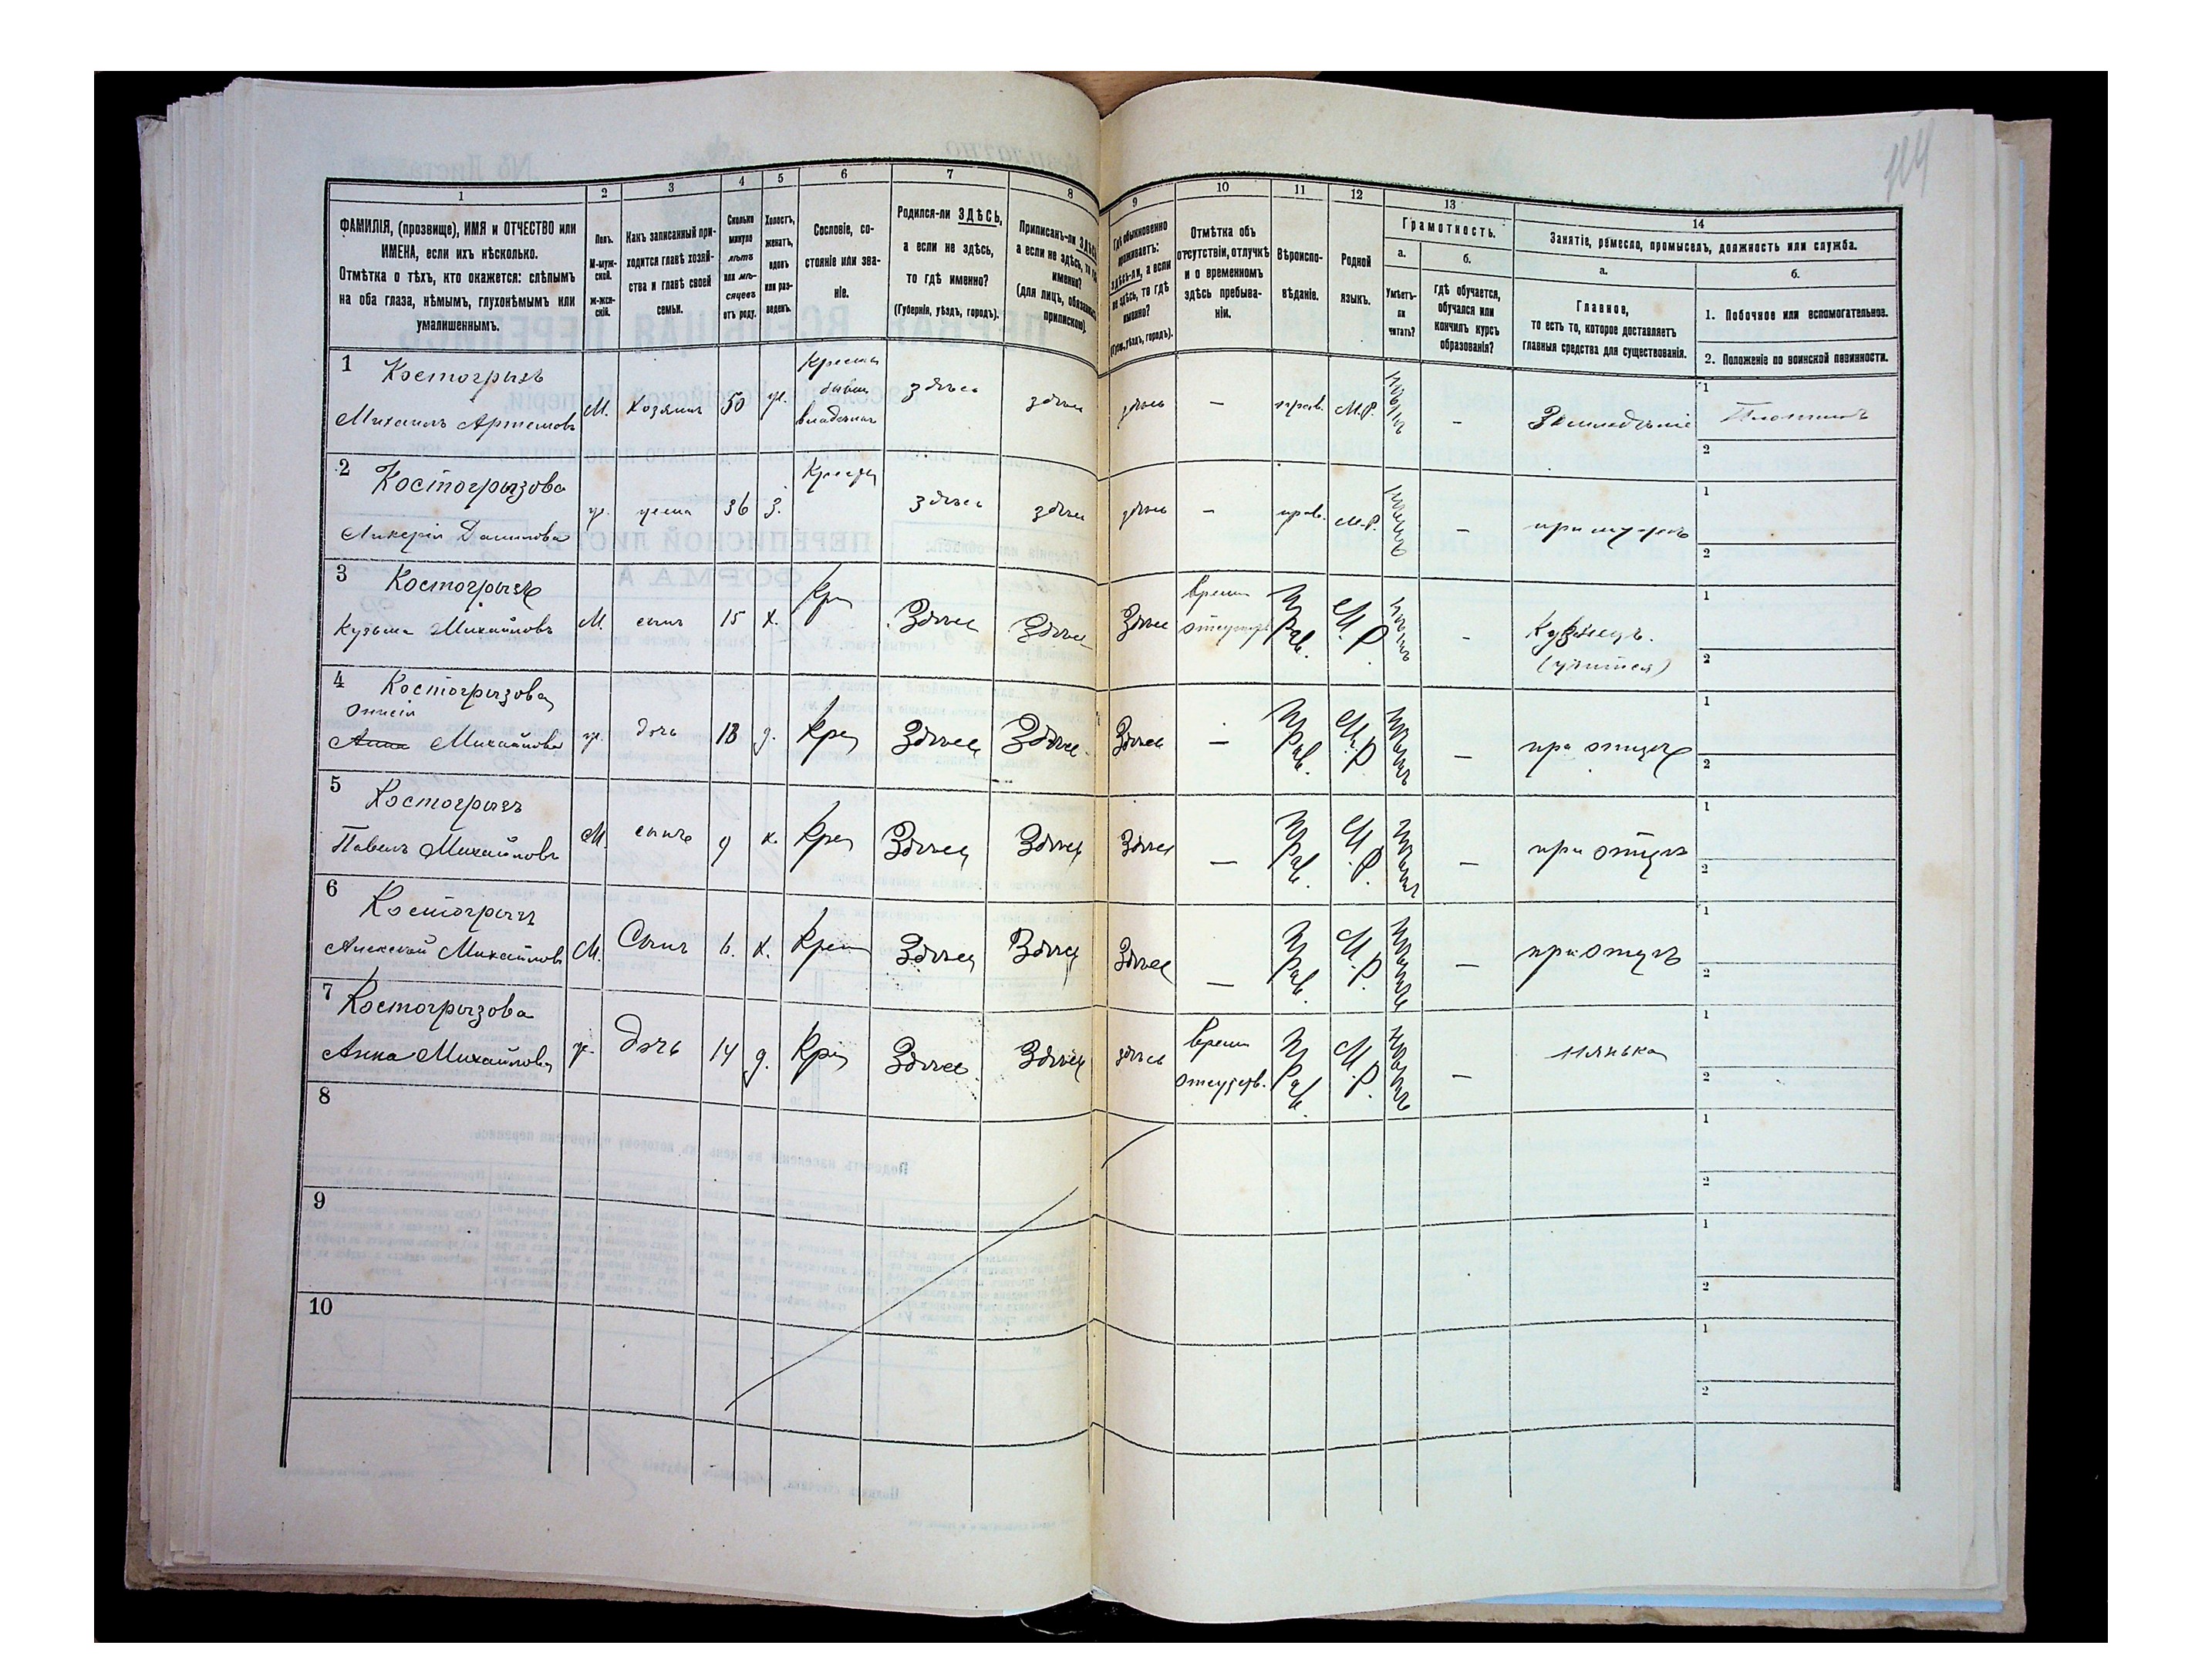 114
1
2
3
4
5
6
7
8
9
10
11
12
13
14
ФАМИЛІЯ, (прозвище), ИМЯ и ОТЧЕСТВО или
ИМЕНА, если ихъ нѣсколько.
Отмѣтка о тѣхъ, кто окажется: слѣпымъ
на оба глаза, нѣмымъ, глухонѣмымъ или
умалишеннымъ.
Полъ.
М-муж-
ской.
ж-жен-
скій.
Какъ записанный при-
ходится главѣ хозяй-
ства и главѣ своей
семьи.
Сколько
минуло
лѣтъ
или мѣ-
сяцевъ
отъ роду.
Холостъ,
женатъ,
вдовъ
или раз-
веденъ.
Сословіе, со-
стояніе или зва-
ніе.
Родился-ли ЗДѢСЬ,
а если не здѣсь,
то гдѣ именно?
(Губернія, уѣздъ, городъ).
Приписанъ-ли ЗДѢСЬ,
а если не здѣсь, то гдѣ
именно?
(для лицъ, обязанныхъ
припискою).
Гдѣ обыкновенно
проживаетъ:
здѣсь-ли, а если
не здѣсь, то гдѣ
именно?
(Губ., уѣздъ, городъ).
Отмѣтка объ
отсутствіи, отлучкѣ
и о временномъ
здѣсь пребыва-
ніи.
Вѣроиспо-
вѣданіе.
Родной
языкъ.
Грамотность.
а.
Умѣетъ-
ли
читать?
б.
гдѣ обучается,
обучался или
кончилъ курсъ
образованія?
Занятіе, ремесло, промыселъ, должность или служба.
а.
Главное,
то есть то, которое доставляетъ
главныя средства для существованія.
б.
1. Побочное или вспомогательное.
2. Положеніе по воинской повинности.
1 Костогрызъ
Михаилъ Артемовъ
М. хозяинъ 50 ж. Крестьян
бывш
владѣльч
здѣсь здѣсь здѣсь — прав. М.Р. — Земледѣліе
1 Плотникъ
2
2 Костогрызова
Ликерія Данилова
ж. жена 36 з. Крестьян здѣсь здѣсь здѣсь — прав. М.Р. — при мужѣ
1
2
3 Костогрызъ
Кузьма Михайловъ
М сынъ 15 х. Кре Здѣсь Здѣсь Здѣсь времен
отсутств
Прав. М.Р. — Кузнецъ.
(учится)
1
2
4 Костогрызова
Онисія
Анна Михайлова
ж. дочь 18 д. Кре Здѣсь Здѣсь Здѣсь — Прав. М.Р. — при отцѣ
1
2
5 Костогрызъ
Павелъ Михайловъ
М. сынъ 9 х. Кре Здѣсь Здѣсь Здѣсь — Прав. М.Р. — при отцѣ
1
2
6 Костогрызъ
Алексѣй Михайловъ
М. Сынъ 6. х. Крест Здѣсь Здѣсь Здѣсь — Прав. М.Р. — при отцѣ
1
2
7 Костогрызова
Анна Михайлова
ж. дочь 14 д. Кре Здѣсь Здѣсь здѣсь времен
отсутств.
Прав. М.Р. — нянька
1
2
8
1
2
9
1
2
10
1
2